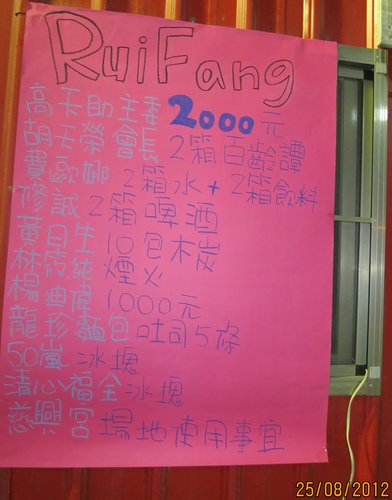 RuiFang
高天助主委 2000元
胡天榮會長 2箱百齡譚
費歐娜 2箱水+2箱飲料
修誠 2箱啤酒
黃日生 10包木炭
林筱純 煙火
楊迪偉 1000元
龍珍麵包 吐司5條
50嵐 冰塊
清心福全 冰塊
慈興宮 場地使用事宜
25/08/2012